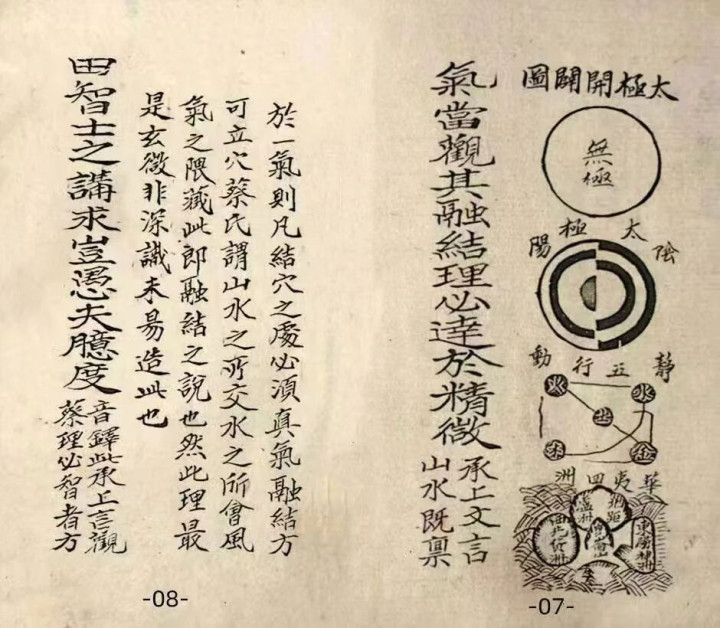 太極開闢圖
無極
太極
陰
陽
靜
五行
動
水
火
土
金
木
華夷四洲
東勝神洲
氣當觀其融結理必達於精微
承上文言
山水既禀
-07-
於一氣則凡結穴之處必須真氣融結方
可立穴蔡氏謂山水之所交水之所會風
氣之隈藏此即融結之說也然此理最
是玄微非深識未易造此也
由智士之講求豈愚夫臆度
音鐸此承上言觀
蔡理必智者方
-08-